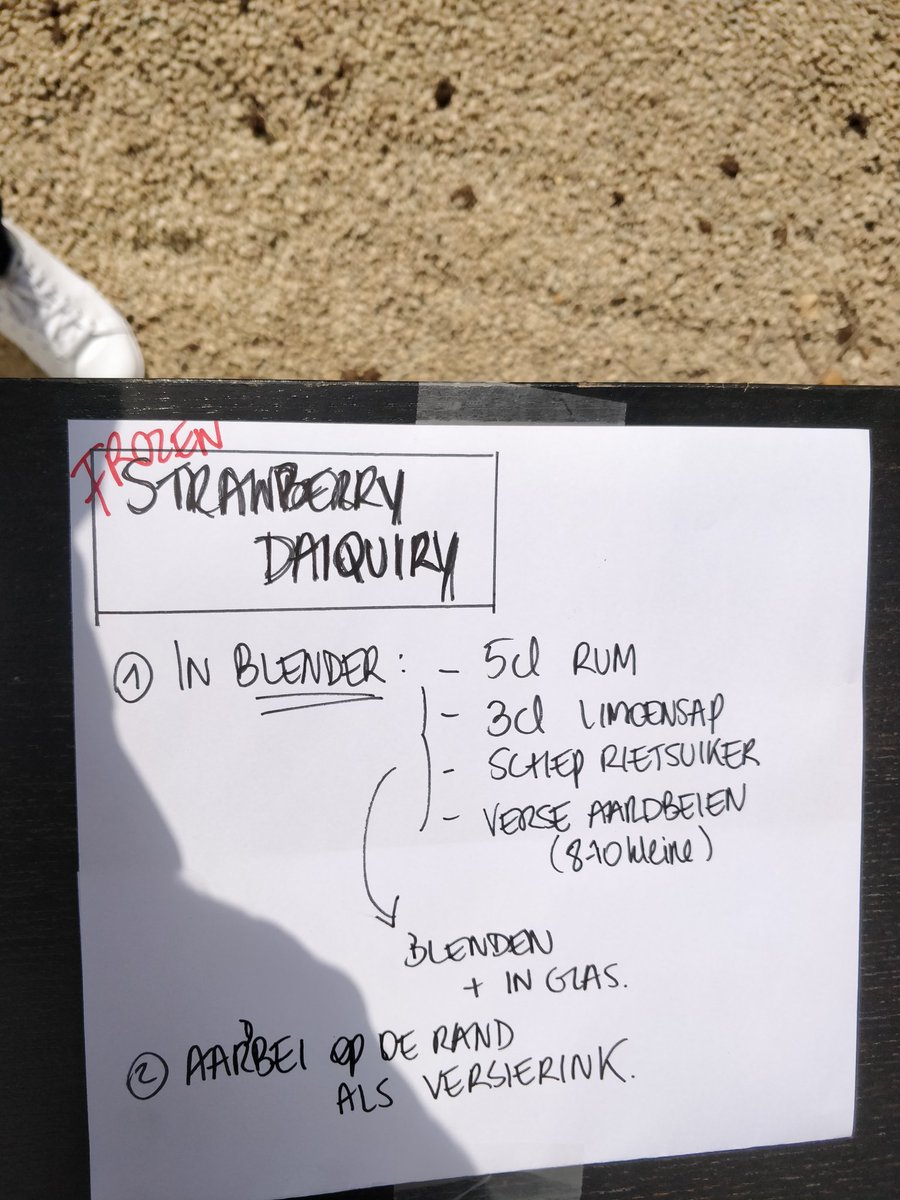 FROZEN
STRAWBERRY
DAIQUIRY
① IN BLENDER: - 5cl RUM
- 3cl LIMOENSAP
- SCHEP RIETSUIKER
- VERSE AARDBEIEN
(8-10 kleine)
BLENDEN
+ IN GLAS.
② AARDBEI OP DE RAND
ALS VERSIERINK.